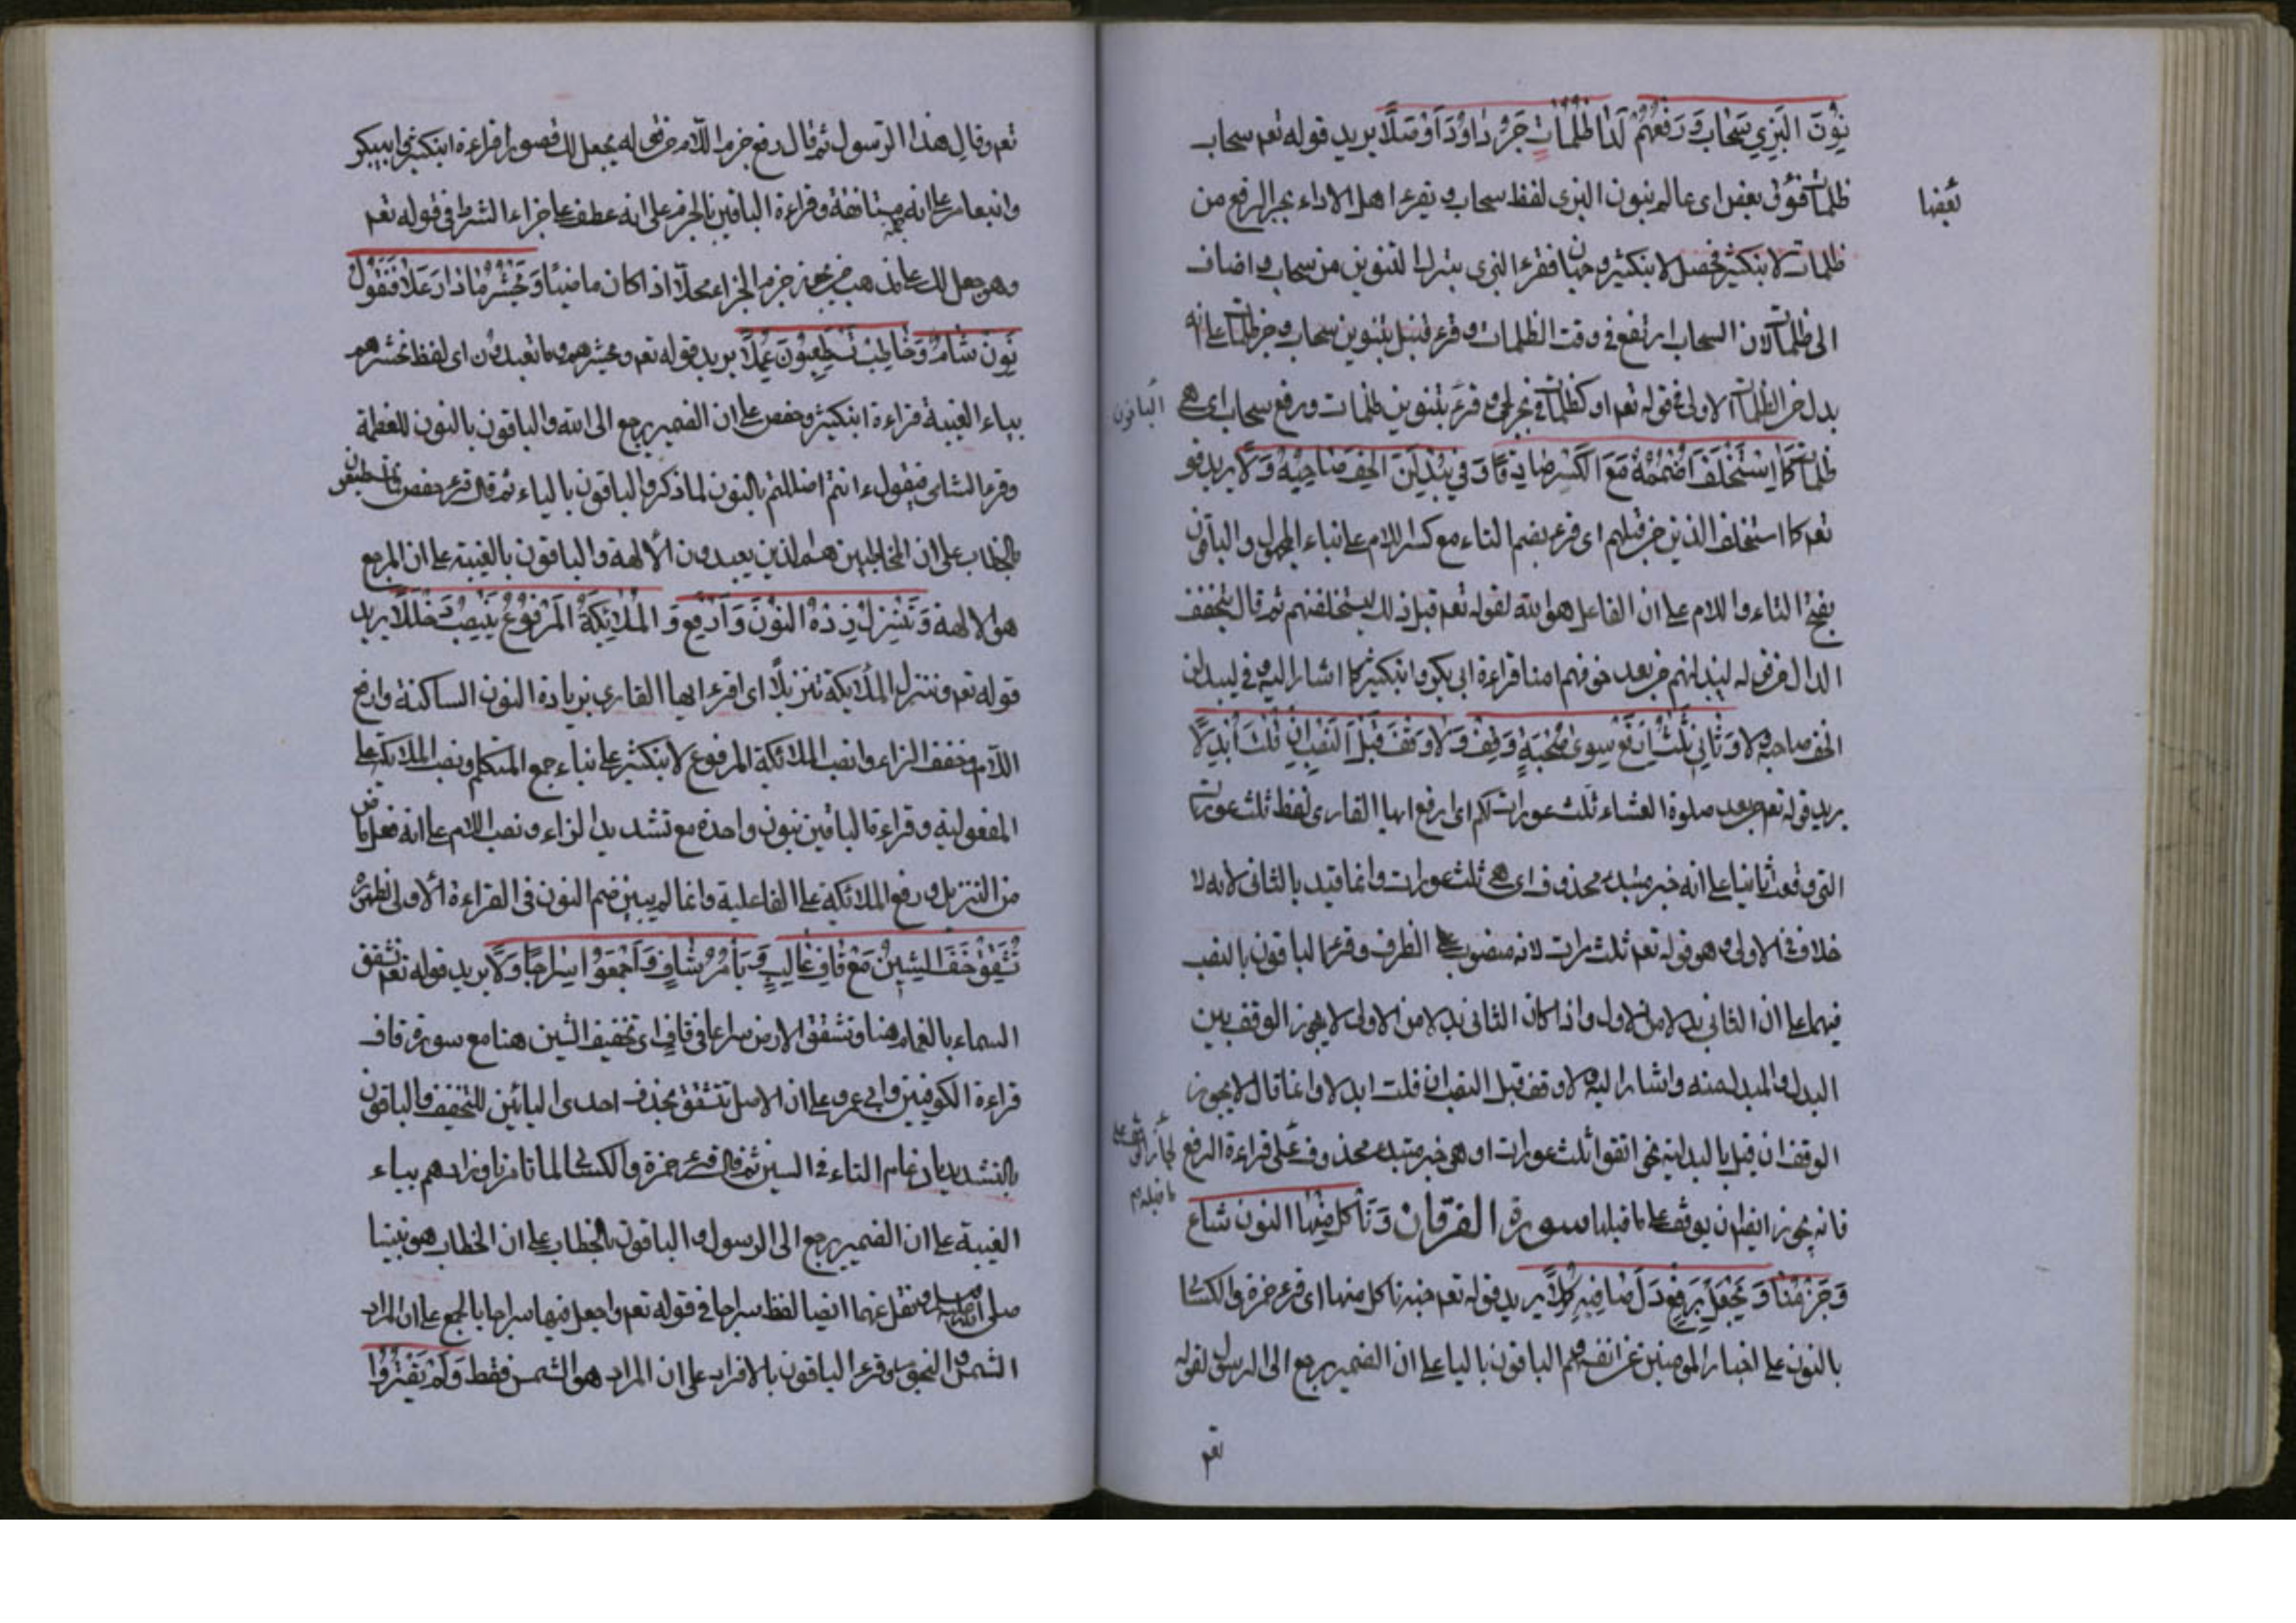 نون البزي سحاب ورفعهم لدا ظلمات جر داود اوصلا يريد قوله تعم سحاب
ظلمات فوق بعض اى عالم بنون البزى لفظ سحاب و يقرء اهل الاداء بجر الرفع من
بعضها
ظلمات لابنكثير فحصل لابنكثير وجهان فقرء البزى بترك التنوين من سحاب و اضاف
الى ظلمات لان السحاب ارتفع فى وقت الظلمات و قرء قنبل بتنوين سحاب و جر ظلمات على انه
بدل من الظلمات الاولى فى قوله تعم او كظلمات فى بحر لجى و قرء بتنوين ظلمات ورفع سحاب اى هى
الباقون
ظلمات كما استخلف اضممه مع الكسر صادقا وفي يبدلن الخف صاحبه ولا يريد قو
تعم كما استخلف الذين من قبلهم اى قرء بضم التاء مع كسر اللام على انباء المجهول والباقون
بفتح التاء واللام على ان الفاعل هو الله لقوله تعم قبل ذلك ليستخلفنهم ثم قال تخفف
الدال من قوله ليبدلنهم من بعد خوفهم امنا قراءة ابى بكر و ابنكثير كما اشار اليه فى ليبدلن
الخف صاحبه ولا وثاني ثلث ارفع سوى صحبة وقف ولا وقف قبل النصب ان قلت ابدلا
يريد قوله تعم من بعد صلوة العشاء ثلث عورات لكم اى ارفع ايها القارى لفظ ثلث عورات
التى وقعت ثانيا على انه خبر مبتدء محذوف اى هى ثلث عورات وانما قيد بالثانى لانه لا
خلاف فى الاولى و هو قوله تعم ثلث مرات لانه منصوب على الظرف و قرء الباقون بالنصب
فيهما على ان الثانى بدلا من الاول و اذا كان الثانى بدلا من الاولى لا يجوز الوقف بين
البدل والمبدل منه واشار اليه ولا وقف قبل النصب ان قلت ابدلا وانما قال لا يجوز
الوقف ان قيل بالبدلية نحى اتقوا ثلث عورات او هى خبر مبتدء محذوف على قراءة الرفع
ما قبله
فانه يجوز ايضا ان يوقف على ما قبلها سورة الفرقان وتأكل منها النون شاع
وجزمنا ويجعل برفع دل صافيه كلا يريد قوله تعم جنة ناكل منها اى قرء حمزة والكسا
بالنون على اخبار المومنين عن انفسهم و الباقون باليا على ان الضمير يرجع الى الرسول لقوله
تعم
تعم وقال هذا الرسول ثم قال رفع جزم اللام من قوله يجعل لك قصورا قراءة ابنكثير و ابيبكر
وابنعامر على انه مستانفة وقراءة الباقين بالجزم على انه عطف على جزاء الشرط فى قوله تعم
جملة
وهو جعل لك على مذهب من يجوز جزم الجزاء محلا اذا كان ماضيا ونحشرما ذا دار علا فنقول
نون شام وخاطب تستطيعون عملا يريد قوله تعم و نحشرهم وما تعبدون اى لفظ نحشرهم
بياء الغيبة قراءة ابنكثير و حفص على ان الضمير يرجع الى الله والباقون بالنون للعظمة
وقرء الشامى فنقول ءانتم اضللتم بالنون لما ذكر والباقون بالياء ثم قال قرء حفص فما تستطيعون
بالخطاب على ان المخاطبين هم الذين يعبدون الالهة والباقون بالغيبة على ان المرجع
هو الالهة وتنزل زده النون وارفع و الملئكة المرفوع ينصب دخللا يريد
قوله تعم وننزل الملائكة تنزيلا اى اقرء ايها القارى بزيادة النون الساكنة وارفع
اللام وخفف الزاء وانصب الملائكة المرفوع لابنكثير على بناء جمع المتكلم ونصب الملائكة على
المفعولية وقراءة الباقين بنون واحدة مع تشديد الزاء ونصب اللام على انه فعل ماض
من التنزيل ورفع الملائكة على الفاعلية وانما لم يبين ضم النون فى القراءة الاولى لظهوره
تشقق خف الشين مع قاف غالب ويأمر شاف واجمعوا سراجا ولا يريد قوله تعم تشقق
السماء بالغمام هنا وتشقق الارض سراعا فى قاف اى تخفيف الشين هنا مع سورة قاف
قراءة الكوفيين وابى عمرو على ان الاصل تتشقق بحذف احدى التائين للتخفيف والباقون
بالتشديد بادغام التاء فى السين ثم قال قرء حمزة والكسائى لما تامرنا وزادهم بياء
الغيبة على ان الضمير يرجع الى الرسول و الباقون بالخطاب على ان الخطاب هو نبينا
صلى الله عليه و نقل عنهما ايضا لفظ سراجا فى قوله تعم وجعل فيها سراجا بالجمع على ان المراد
الشمس و النجوم وقرء الباقون بالافراد على ان المراد هو الشمس فقط ولم يقتروا